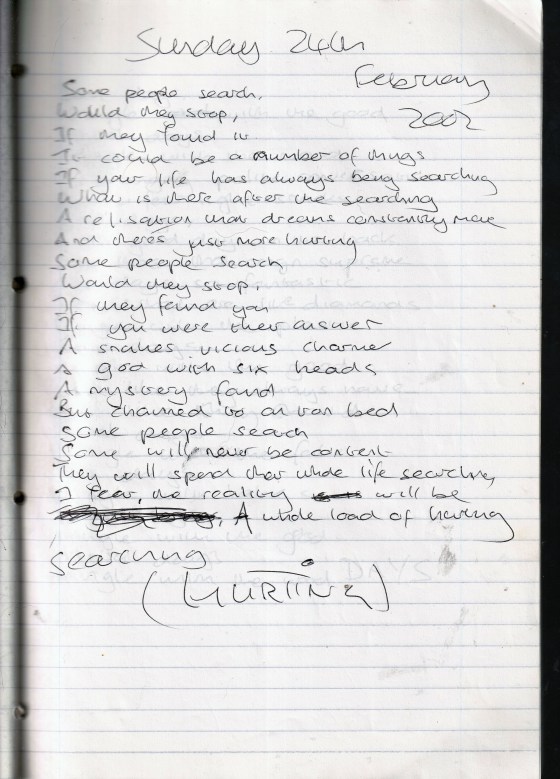 Sunday 24th
February
2002
Some people search,
Would they stop,
If they found it
It could be a number of things
If your life has always being searching
What is there after the searching
A relisation that dreams constantly move
And there's just more hurting
Some people search,
Would they stop,
If they found you
If you were their answer
A snakes vicious charmer
A god with six heads
A mystery found
But chained to an iron bed
Some people search
Some will never be content
They will spend their whole life searching
I fear, the reality will be
A whole load of hurting
searching
(HURTING)